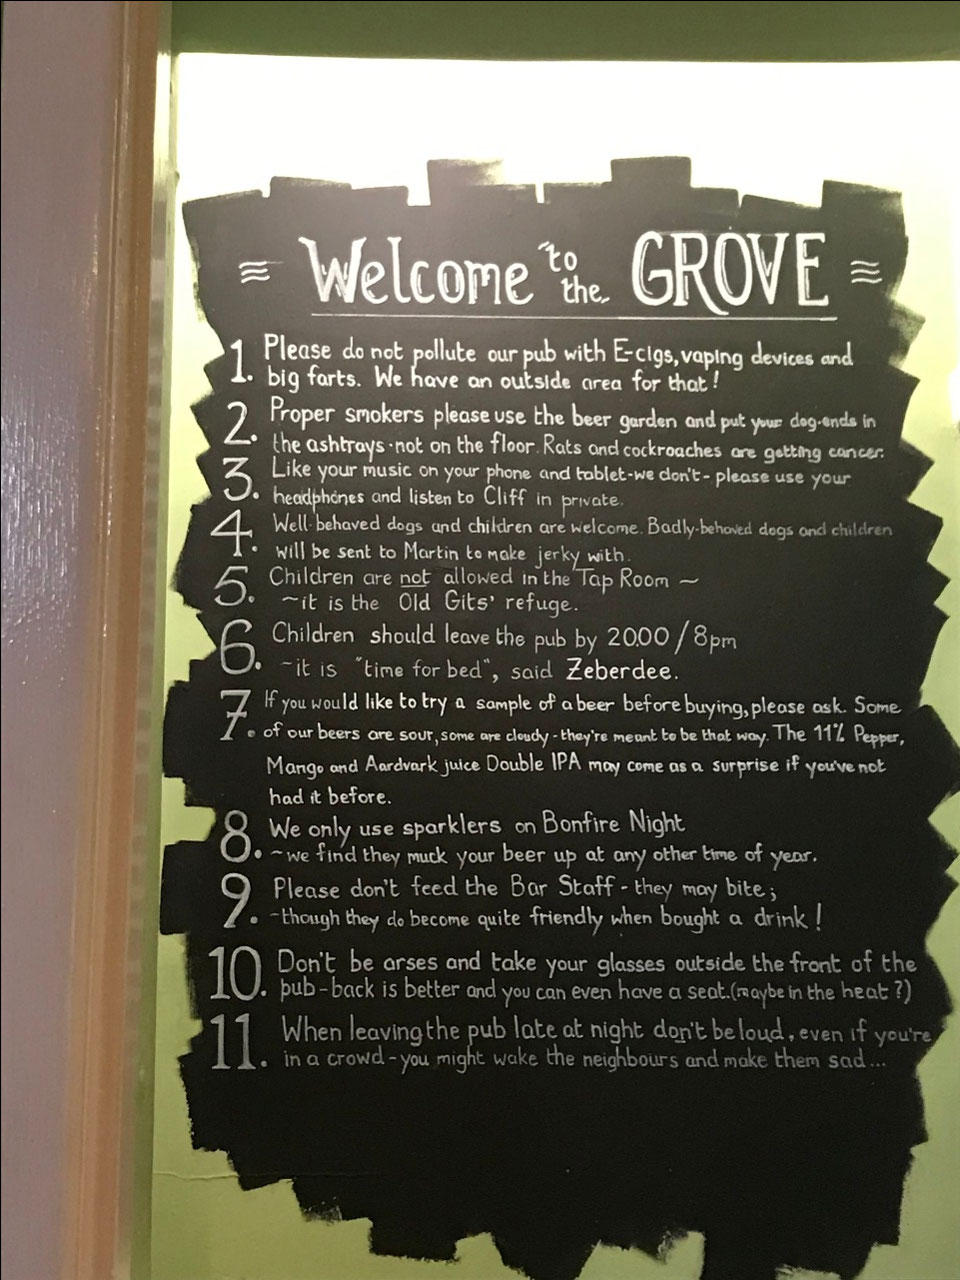 Welcome to the GROVE
1. Please do not pollute our pub with E-cigs, vaping devices and
big farts. We have an outside area for that!
2. Proper smokers please use the beer garden and put your dog-ends in
the ashtrays - not on the floor. Rats and cockroaches are getting cancer.
3. Like your music on your phone and tablet - we don't - please use your
headphones and listen to Cliff in private.
4. Well-behaved dogs and children are welcome. Badly-behaved dogs and children
will be sent to Martin to make jerky with.
5. Children are not allowed in the Tap Room ~
~it is the Old Gits' refuge.
6. Children should leave the pub by 20.00 / 8pm
~it is "time for bed", said Zeberdee.
7. If you would like to try a sample of a beer before buying, please ask. Some
of our beers are sour, some are cloudy - they're meant to be that way. The 11% Pepper,
Mango and Aardvark juice Double IPA may come as a surprise if you've not
had it before.
8. We only use sparklers on Bonfire Night
~we find they muck your beer up at any other time of year.
9. Please don't feed the Bar Staff - they may bite;
~though they do become quite friendly when bought a drink!
10. Don't be arses and take your glasses outside the front of the
pub - back is better and you can even have a seat. (maybe in the heat?)
11. When leaving the pub late at night don't be loud, even if you're
in a crowd - you might wake the neighbours and make them sad...